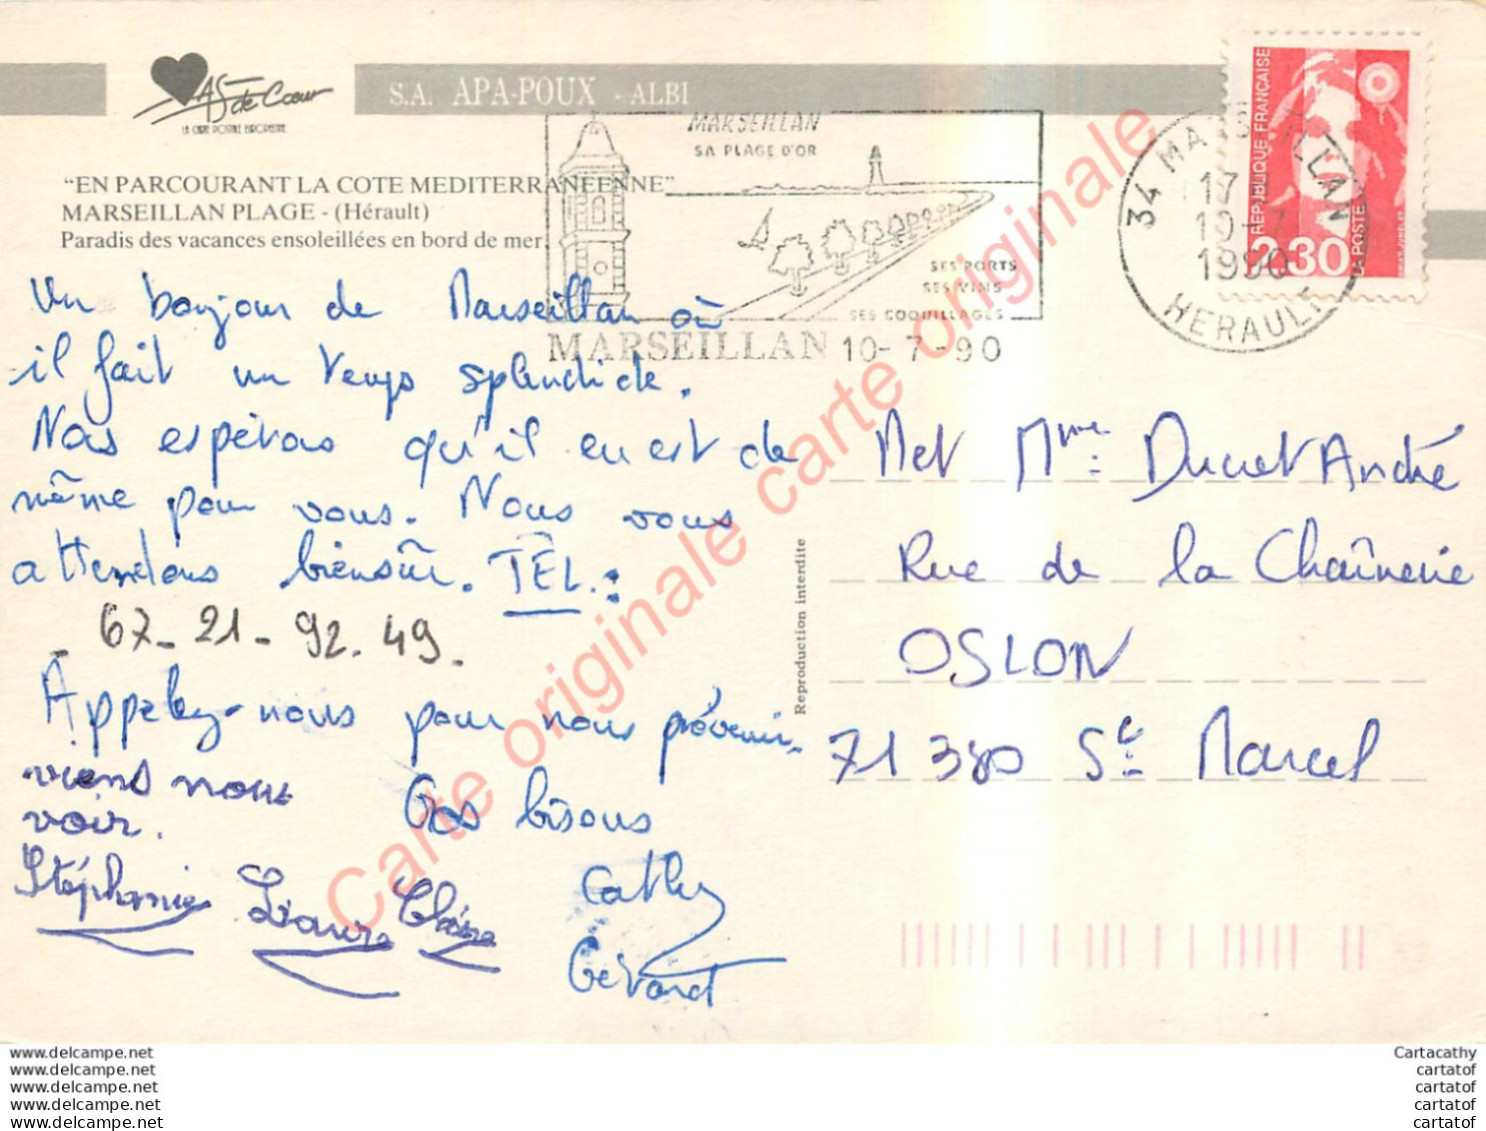 AS de Cœur
LA CARTE POSTALE EUROPEENNE
S.A. APA-POUX - ALBI
"EN PARCOURANT LA COTE MEDITERRANEENNE"
MARSEILLAN PLAGE - (Hérault)
Paradis des vacances ensoleillées en bord de mer.
MARSEILLAN
SA PLAGE D'OR
SES PORTS
SES VINS
SES COQUILLAGES
MARSEILLAN 10-7-90
34 MARSEILLAN
17
10-7
1990
HERAULT
REPUBLIQUE FRANÇAISE
2,30
LA POSTE
Un bonjour de Marseillan où
il fait un temps splendide.
Nous espérons qu'il en est de
même pour vous. Nous vous
attendons biensûr. TÉL.:
67-21-92.49.
Appelez-nous pour nous prévenir.
viens nous
voir.
Gros bisous
Stéphanie Laura Claire
Cathy
Gérard
M et Mme Ducret André
Rue de la Chaînerie
OSLON
71 380 St Marcel
Reproduction interdite
Carte originale carte originale
www.delcampe.net
www.delcampe.net
www.delcampe.net
www.delcampe.net
www.delcampe.net
Cartacathy
cartatof
cartatof
cartatof
cartatof